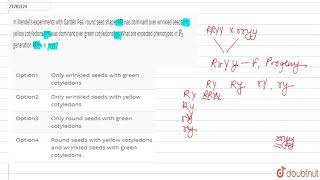 2178G224
In Mendel's experiments with Garden Pea, round seed shape (RR) was dominant over wrinkled seeds (rr),
yellow cotyledons (YY) was dominant over green cotyledons (yy). What are expected phenotypes in F₂
generation RRYY x rryy?
Option1 Only wrinkled seeds with green cotyledons
Option2 Only wrinkled seeds with yellow cotyledons
Option3 Only round seeds with green cotyledons
Option4 Round seeds with yellow cotyledons and wrinkled seeds with green cotyledons.
RRYY x rryy
RrYy — F₁ Progeny
RY Ry rY ry
RY
Ry
rY
ry
rryy
doubtnut